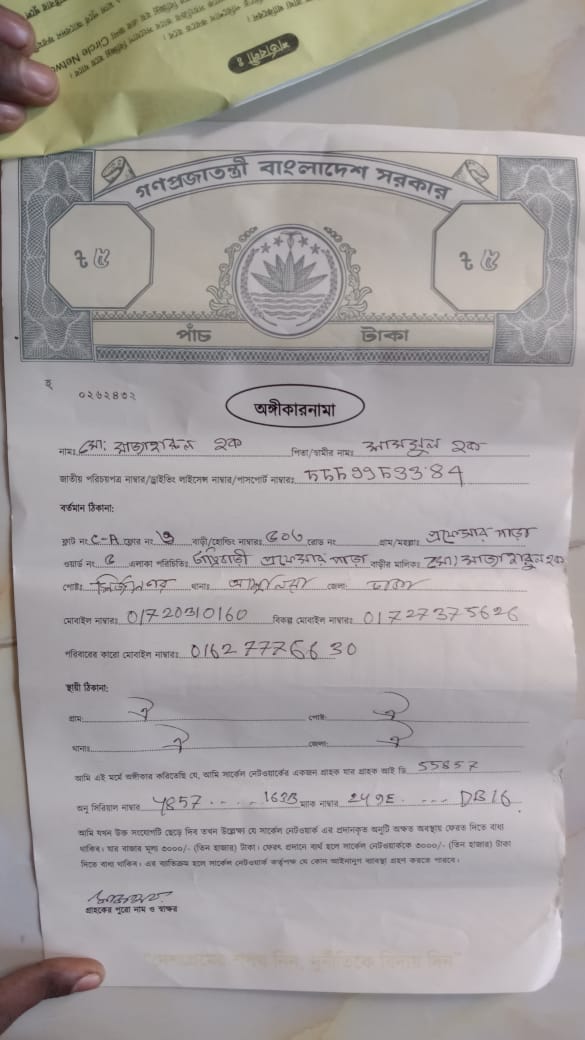 শর্তাবলী :
গণপ্রজাতন্ত্রী বাংলাদেশ সরকার
৳ ৫ ৳ ৫
পাঁচ টাকা
০২৬২৪৩২
অঙ্গীকারনামা
নাম: মো: আজাহারুল হক পিতা/স্বামীর নাম: হক
জাতীয় পরিচয়পত্র নাম্বার/ড্রাইভিং লাইসেন্স নাম্বার/পাসপোর্ট নাম্বার:
বর্তমান ঠিকানা:
ফ্লাট নং C-A ফ্লোর নং ৩ বাড়ী/হোল্ডিং নাম্বার: ৫০৬ রোড নং গ্রাম/মহল্লা: প্রফেসার পাড়া
ওয়ার্ড নং ৫ এলাকা পরিচিতি: প্রফেসার পাড়া বাড়ীর মালিক: মো: আজাহারুল হক
পোষ্ট: থানা: আশুলিয়া জেলা: ঢাকা
মোবাইল নাম্বার: 01720310160 বিকল্প মোবাইল নাম্বার: 01727375626
পরিবারের কারো মোবাইল নাম্বার: 01627776630
স্থায়ী ঠিকানা:
গ্রাম: ঐ পোষ্ট: ঐ
থানা: ঐ জেলা: ঐ
আমি এই মর্মে অঙ্গীকার করিতেছি যে, আমি সার্কেল নেটওয়ার্কের একজন গ্রাহক যার গ্রাহক আই ডি 55857
অনু সিরিয়াল নাম্বার 4857.... 163B ম্যাক নাম্বার 249E. ... DB16.
আমি যখন উক্ত সংযোগটি ছেড়ে দিব তখন উল্লেক্ষ্য যে সার্কেল নেটওয়ার্ক এর প্রদানকৃত অনুটি অক্ষত অবস্থায় ফেরত দিতে বাধ্য
থাকিব। যার বাজার মূল্য ৩০০০/- (তিন হাজার) টাকা। ফেরৎ প্রদানে ব্যর্থ হলে সার্কেল নেটওয়ার্ককে ৩০০০/- (তিন হাজার) টাকা
দিতে বাধ্য থাকিব। এর ব্যতিক্রম হলে সার্কেল নেটওয়ার্ক কর্তৃপক্ষ যে কোন আইনানুগ ব্যবস্থা গ্রহণ করতে পারবে।
গ্রাহকের পুরো নাম ও স্বাক্ষর
নিন, দুর্নীতিকে বিদায় দিন"